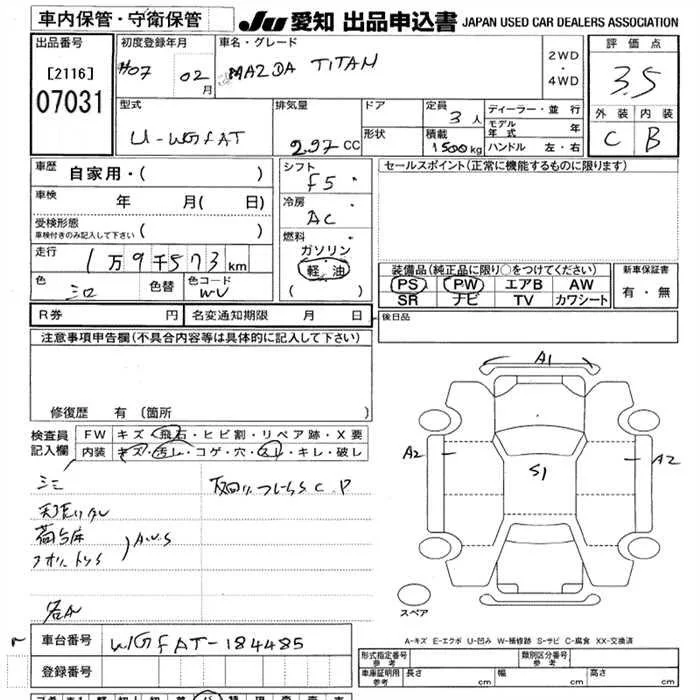 車内保管・守衛保管
JU 愛知 出品申込書 JAPAN USED CAR DEALERS ASSOCIATION
出品番号
[2116]
07031
初度登録年月
H07 02月
車名・グレード
MAZDA TITAN
2WD
・
4WD
評価点
3.5
外装 内装
C B
型式
U-WGFAT
排気量
2.97 CC
ドア
形状
定員
3人
積載
1500kg
ディーラー・並行
モデル年式 年
ハンドル 左・右
車歴
自家用・( )
車検
年 月( 日)
受検形態
車検付きのみ記入して下さい ( )
走行
1万9千573km
色
色替
色コード
WU
シフト
F5
冷房
AC
燃料
ガソリン
・
軽油
( )
セールスポイント(正常に機能するものに限ります)
装備品(純正品に限り○をつけてください)
PS PW エアB AW
SR ナビ TV カワシート
新車保証書
有・無
R券 円 名変通知期限 月 日
後日品
注意事項申告欄(不具合内容等は具体的に記入して下さい)
修復歴 有(箇所 )
検査員記入欄
FW キズ・飛石・ヒビ割・リペア跡・X要
内装 キズ・汚レ・コゲ・穴・スレ・キレ・破レ
荷台床
A.U.S
C.P
A1
A2 S1 A2
スペア
A-キズ E-エクボ U-凹み W-補修跡 S-サビ C-腐食 XX-交換済
車台番号 WGFAT-184485
登録番号
形式指定番号
参考
類別区分番号
参考
車庫証明用
参考
長さ cm 幅 cm 高さ cm